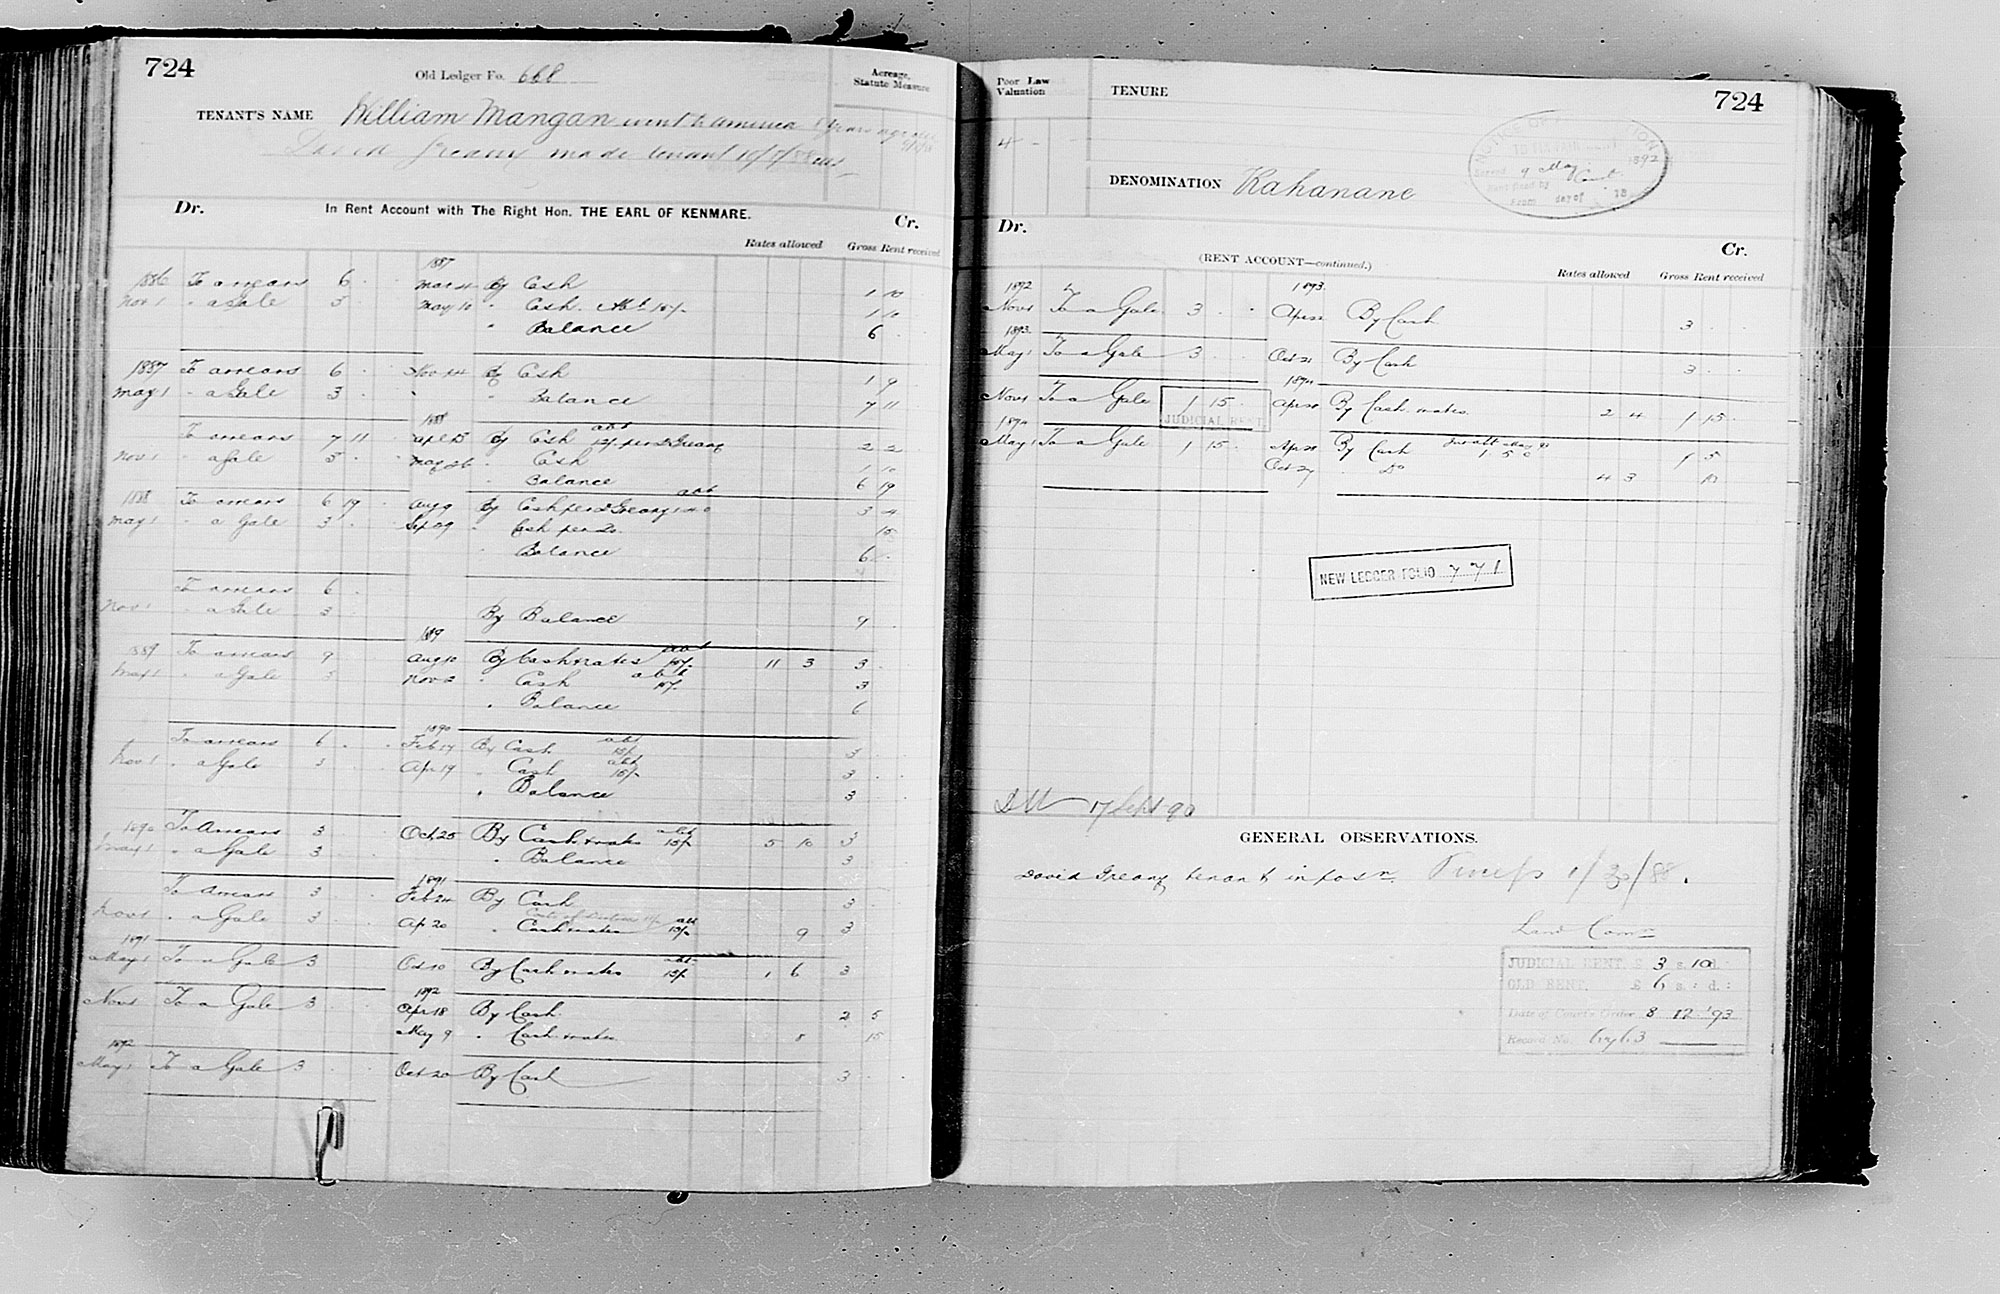 724
Old Ledger Fo. 668
Acreage, Statute Measure
TENANT'S NAME William Mangan went to America 8 years ago
made tenant
Dr. In Rent Account with The Right Hon. THE EARL OF KENMARE. Cr.
Rates allowed Gross Rent received
1887
1886 To arrears 6 By Cash 1 10
Nov 1 " a Gale 3 May 10 " Cash Abt 15/- 1 10
" Balance 6
1887 To arrears 6 Nov 24 By Cash 1 9
May 1 " a Gale 3 " Balance 7 11
1888
To arrears 7 11 Apl 25 By Cash abt 2 2
Nov 1 " a Gale 3 May 26 " Cash 1 10
" Balance 6 19
1888 To arrears 6 19 Aug 9 By Cash per D Greany abt 3 4
May 1 " a Gale 3 Sep 29 " Cash per Do 15
" Balance 6
To arrears 6
Nov 1 " a Gale 3 By Balance 9
1889
1889 To arrears 9 Aug 10 By Cash & rates abt 15/- 11 3 3
May 1 " a Gale 3 Nov 2 " Cash abt 15/- 3
" Balance 6
1890
To arrears 6 Feb 17 By Cash abt 15/- 3
Nov 1 " a Gale 3 Apr 19 " Cash abt 15/- 3
" Balance 3
1890 To Arrears 3 Oct 25 By Cash & rates abt 15/- 5 10 3
May 1 " a Gale 3 " Balance 3
1891
To Arrears 3 Feb 24 By Cash 3
Nov 1 " a Gale 3 Ap 20 " Cash & rates abt 15/- 9 3
1891
May 1 To a Gale 3 Oct 10 By Cash & rates abt 15/- 1 6 3
1892
Nov 1 To a Gale 3 Apr 18 By Cash 2 5
May 9 " Cash & rates 8 15
1892
May 1 To a Gale 3 Oct 20 By Cash 3
Poor Law Valuation
TENURE
724
4 - -
NOTICE OF APPLICATION
TO FIX FAIR RENT
Served 9 May 1892
Rent fixed by Court
From day of 18
DENOMINATION Kahanane
Dr. Cr.
(RENT ACCOUNT—continued.)
Rates allowed Gross Rent received
1892 1893
Nov 1 To a Gale 3 Apr 22 By Cash 3
1893
May 1 To a Gale 3 Oct 21 By Cash 3
1894
Nov 1 To a Gale 1 15 Apr 28 By Cash & rates 2 4 1 15
JUDICIAL RENT
1894
May 1 To a Gale 1 15 Apr 28 By Cash 1 5 0 1 5
Oct 27 " Do 4 3 10
NEW LEDGER FOLIO 771
17 Sept 90
GENERAL OBSERVATIONS.
David Greany tenant in possn.
Land Comn
JUDICIAL RENT, £ 3 s. 10 d. :
OLD RENT, £ 6 s. : d. :
Date of Court's Order 8 12 '93
Record No.